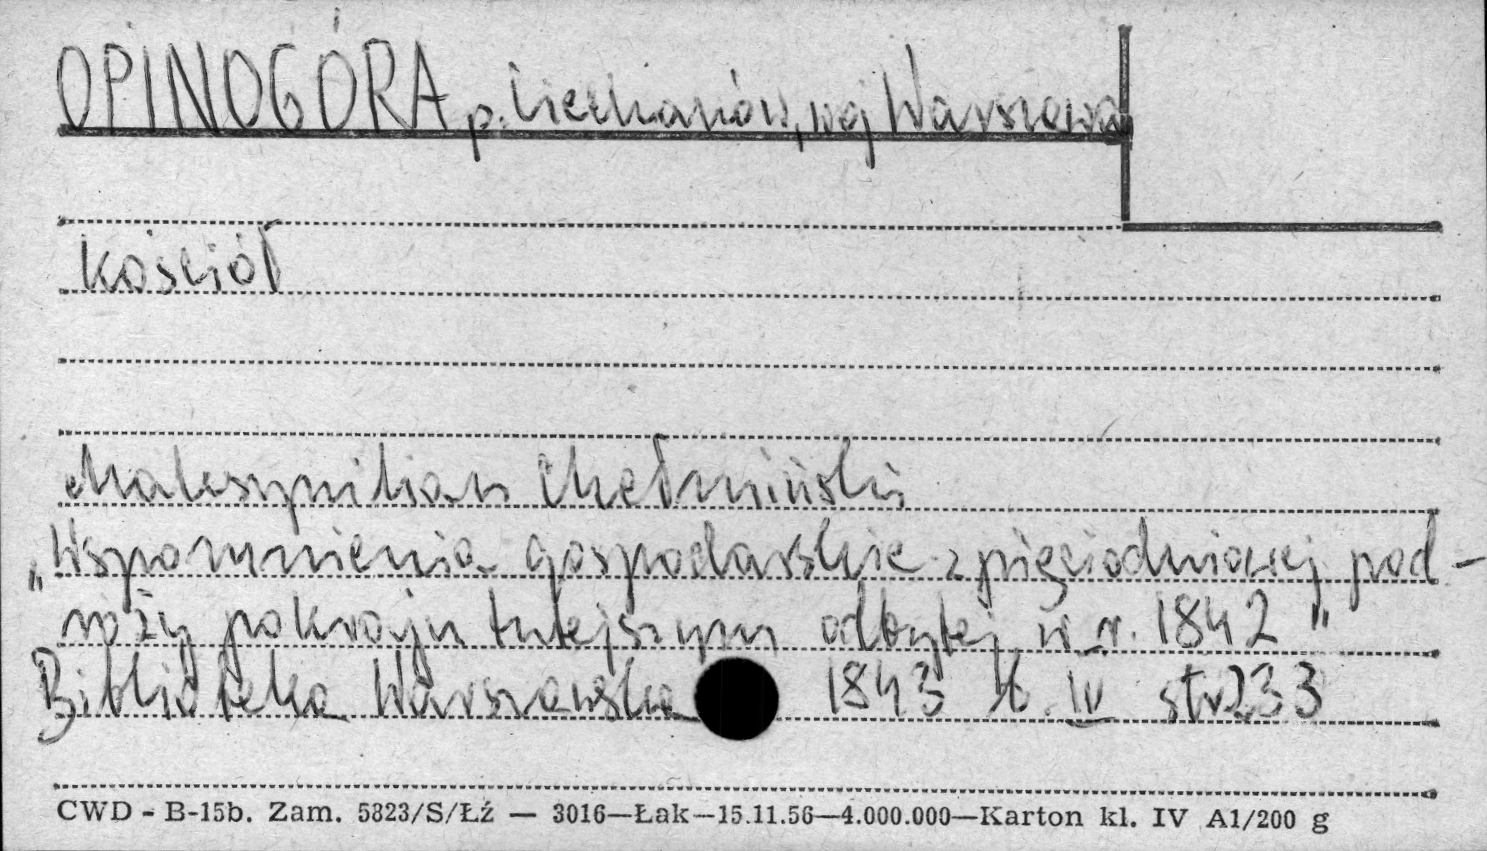 OPINOGÓRA p. Ciechanów, woj Warszawa
Kościół
Maksymilian Chełmiński
„Wspomnienia gospodarskie z pięciodniowej pod-
róży po kraju tutejszym odbytej w r. 1842"
Biblioteka Warszawska 1843 t. IV str 233
CWD - B-15b. Zam. 5823/S/Łź — 3016—Łak—15.11.56—4.000.000—Karton kl. IV A1/200 g